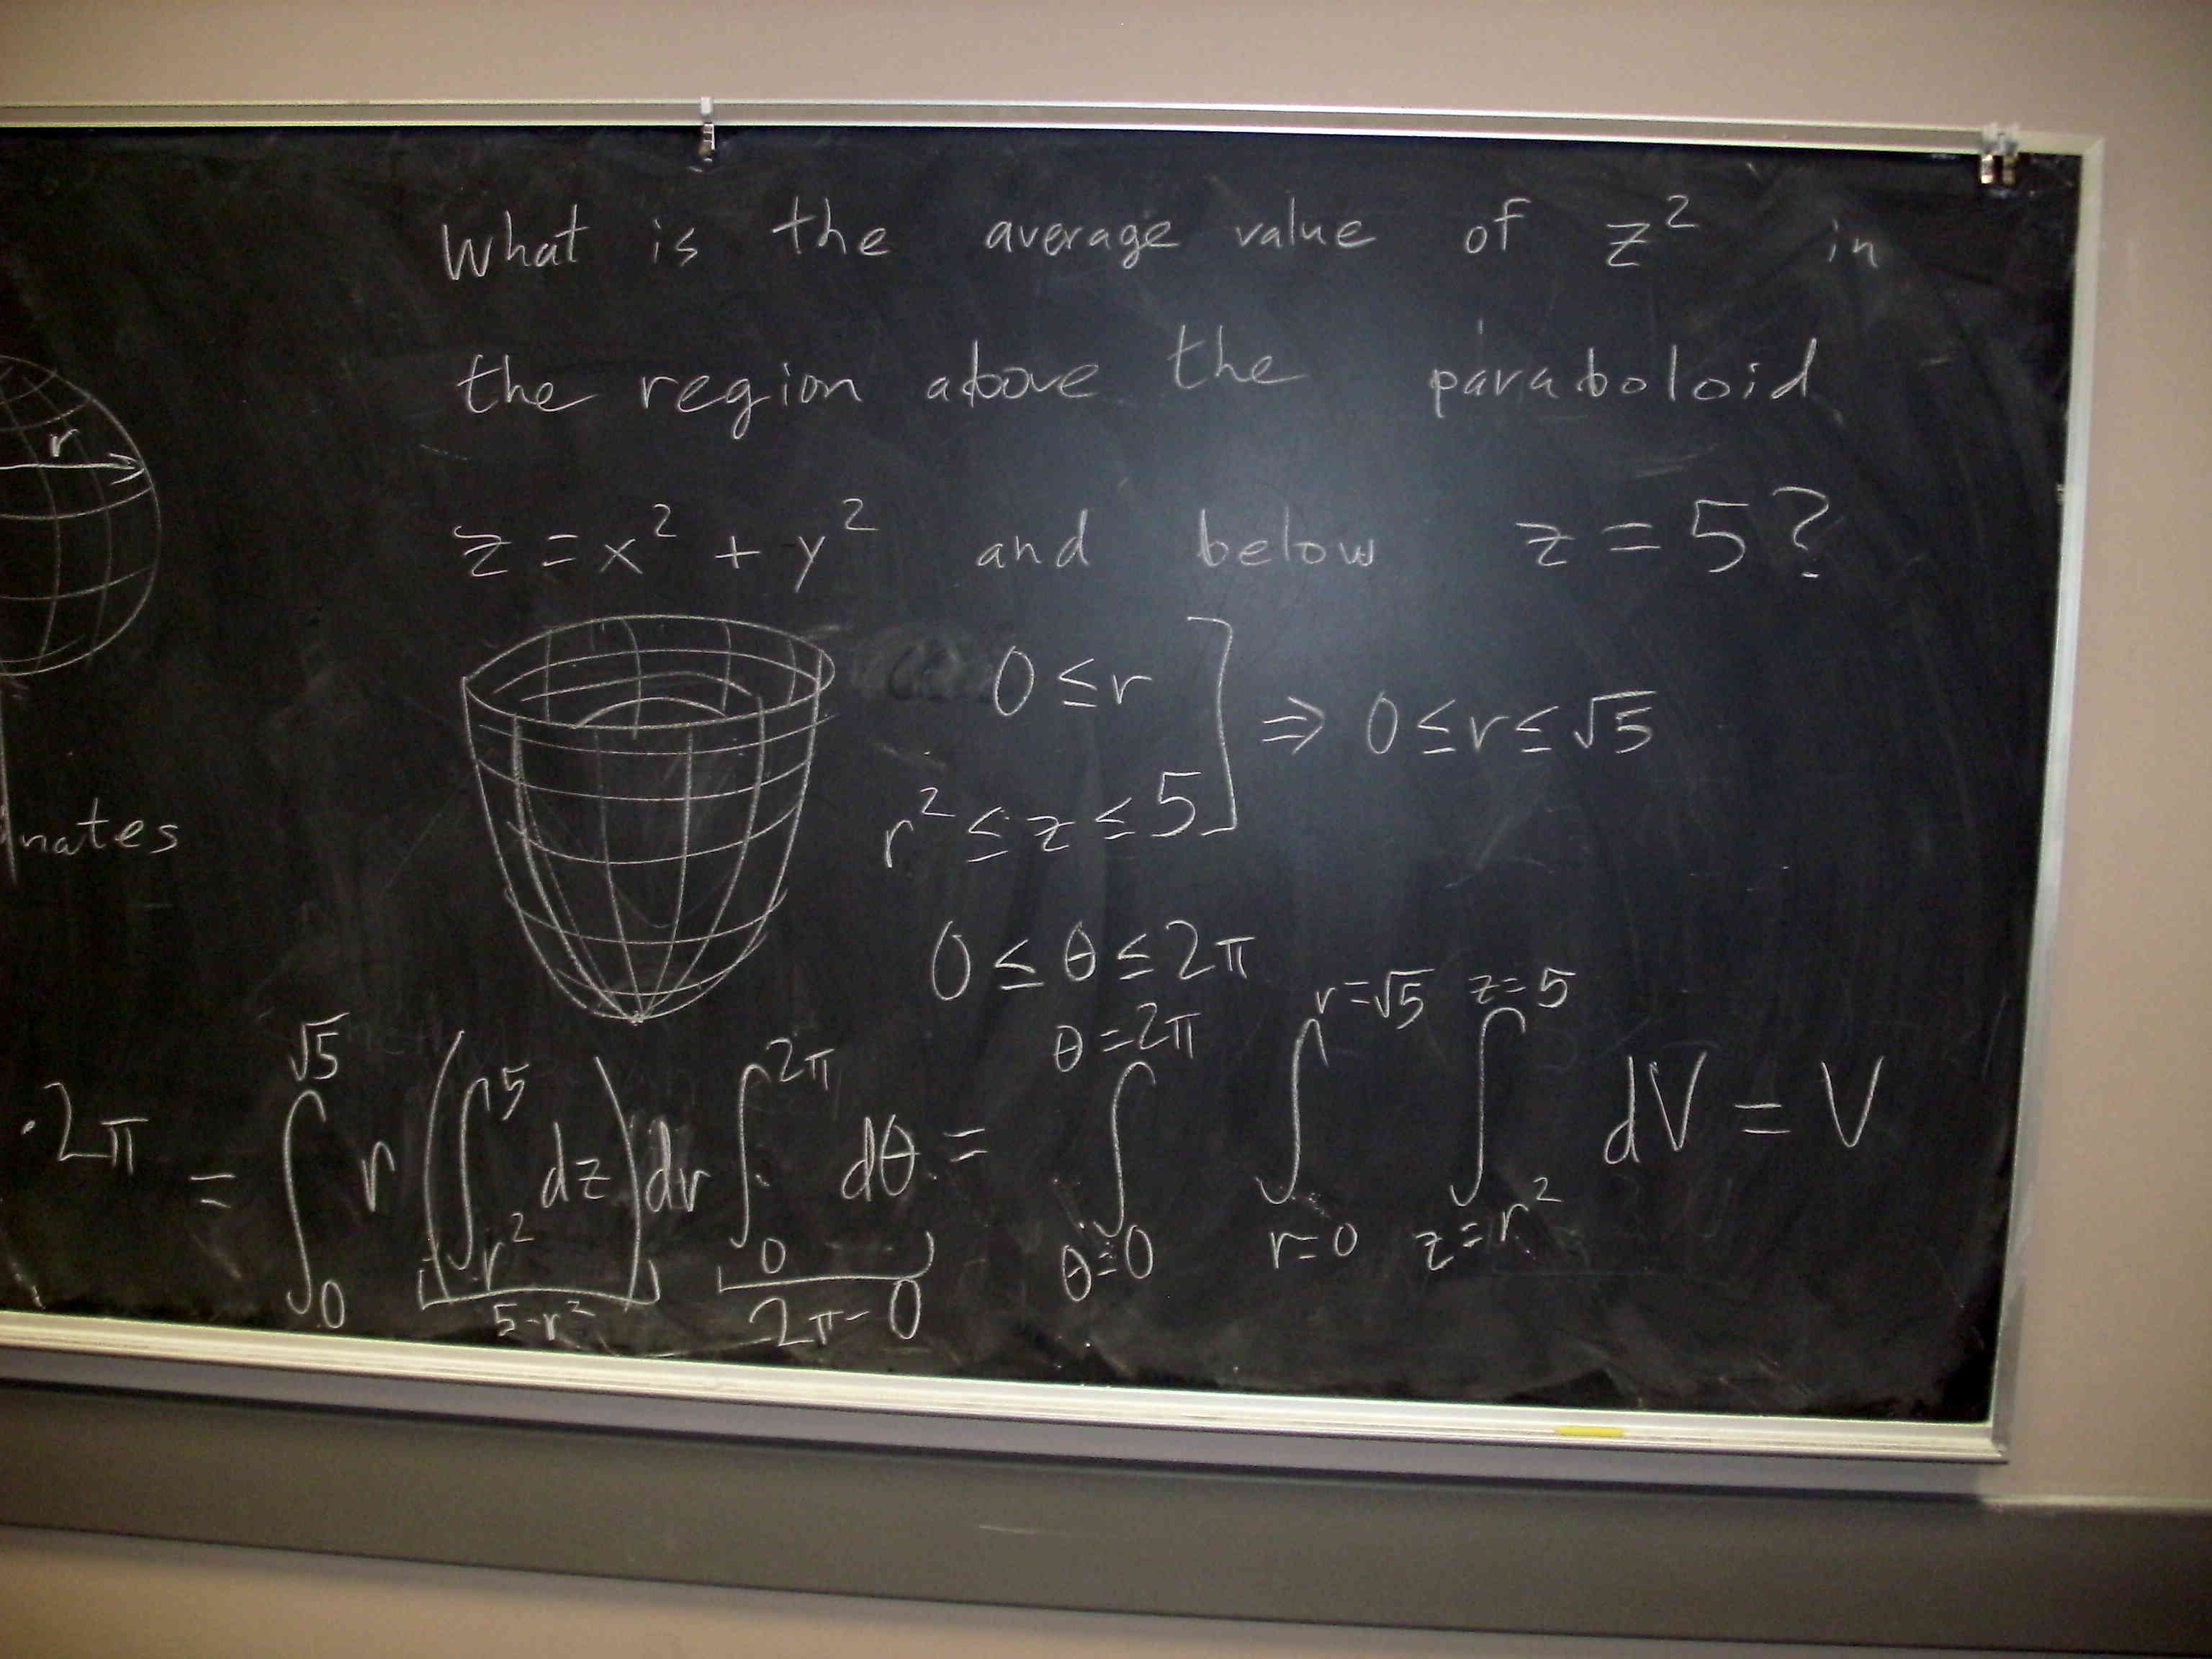 What is the average value of z² in
the region above the paraboloid
z = x² + y² and below z = 5?
r
0 ≤ r
⇒ 0 ≤ r ≤ √5
r² ≤ z ≤ 5
nates
0 ≤ θ ≤ 2π
·2π = ∫₀^√5 r (∫_r²^5 dz) dr ∫₀^2π dθ = ∫_θ=0^θ=2π ∫_r=0^r=√5 ∫_z=r²^z=5 dV = V
5-r² 2π-0